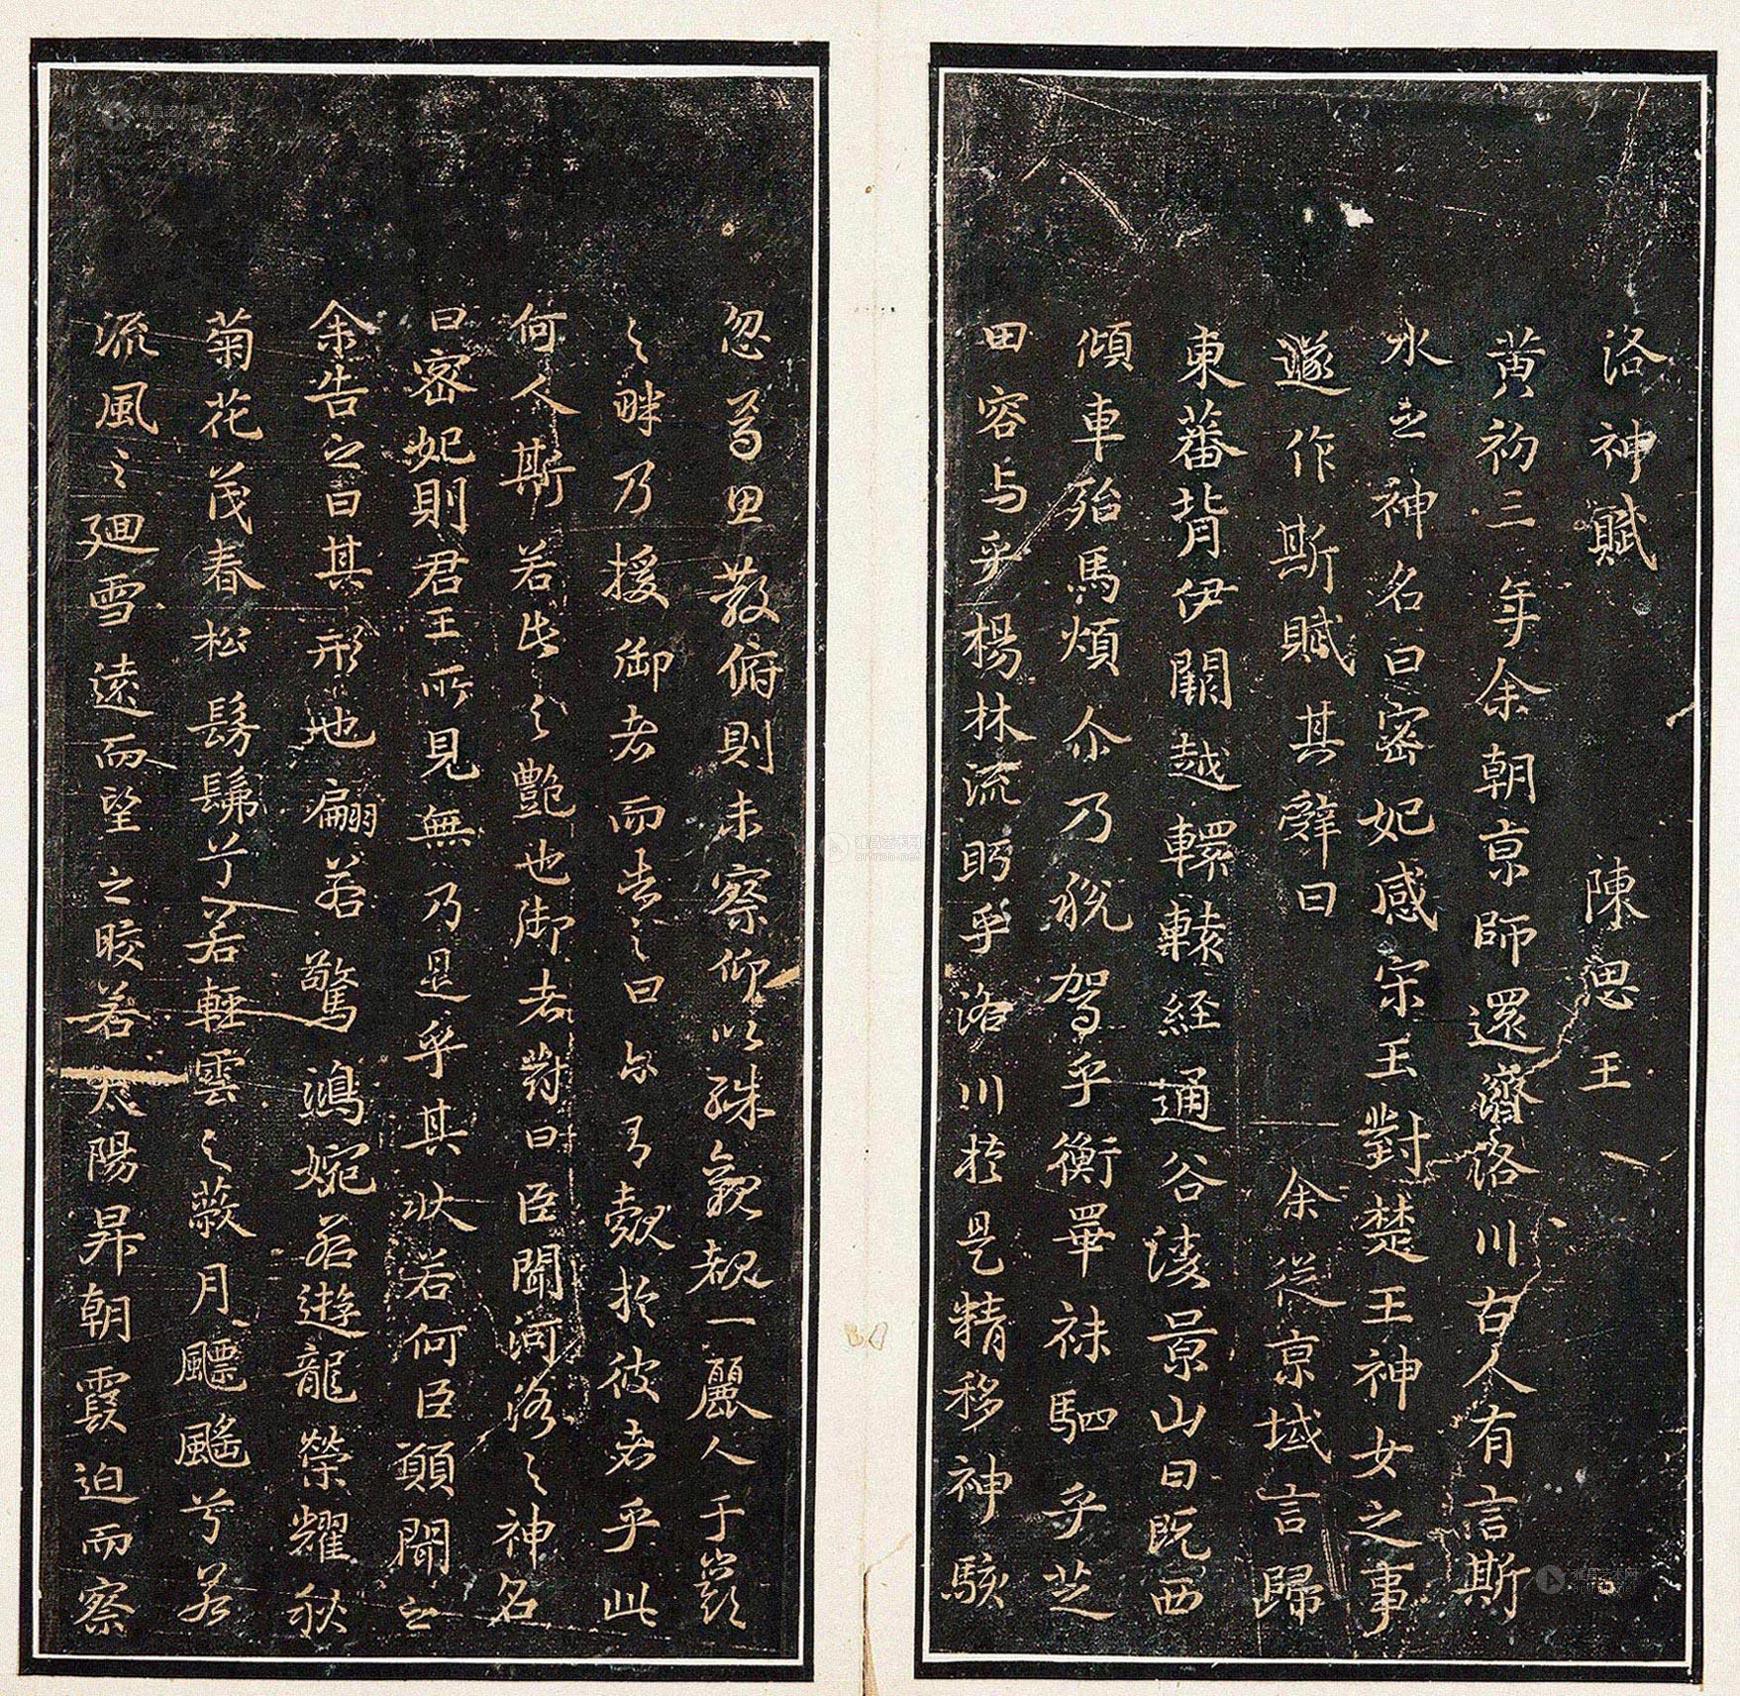 洛神賦 陳思王
黃初三年余朝京師還濟洛川古人有言斯
水之神名曰宓妃感宋玉對楚王神女之事
遂作斯賦其辭曰 余從京域言歸
東蕃背伊闕越轘轅經通谷陵景山日既西
傾車殆馬煩尒乃稅駕乎衡睪袜駟乎芝
田容与乎楊林流眄乎洛川於是精移神駭
忽焉思散俯則未察仰以殊觀覩一麗人于巖
之畔乃援御者而告之曰尔有覿於彼者乎此
何人斯若此之豔也御者對曰臣聞河洛之神名
曰宓妃則君王所見無乃是乎其狀若何臣願聞之
余告之曰其形也翩若驚鴻婉若遊龍榮耀秋
菊花茂春松髣髴兮若輕雲之蔽月飄颻兮若
流風之廻雪遠而望之皎若太陽昇朝霞迫而察